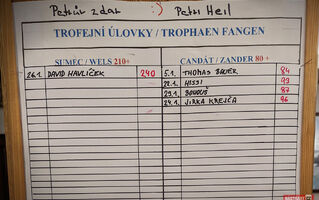 Petrův zdar :) Petri Heil
TROFEJNÍ ÚLOVKY / TROPHAEN FANGEN
SUMEC / WELS 210+ CANDÁT / ZANDER 80+
26.1. DAVID HAVLÍČEK 240 5.1. THOMAS BAUER 84
22.1. HISSI 93
23.1. BOUDUŠ 87
24.1. JIRKA KREJČA 86